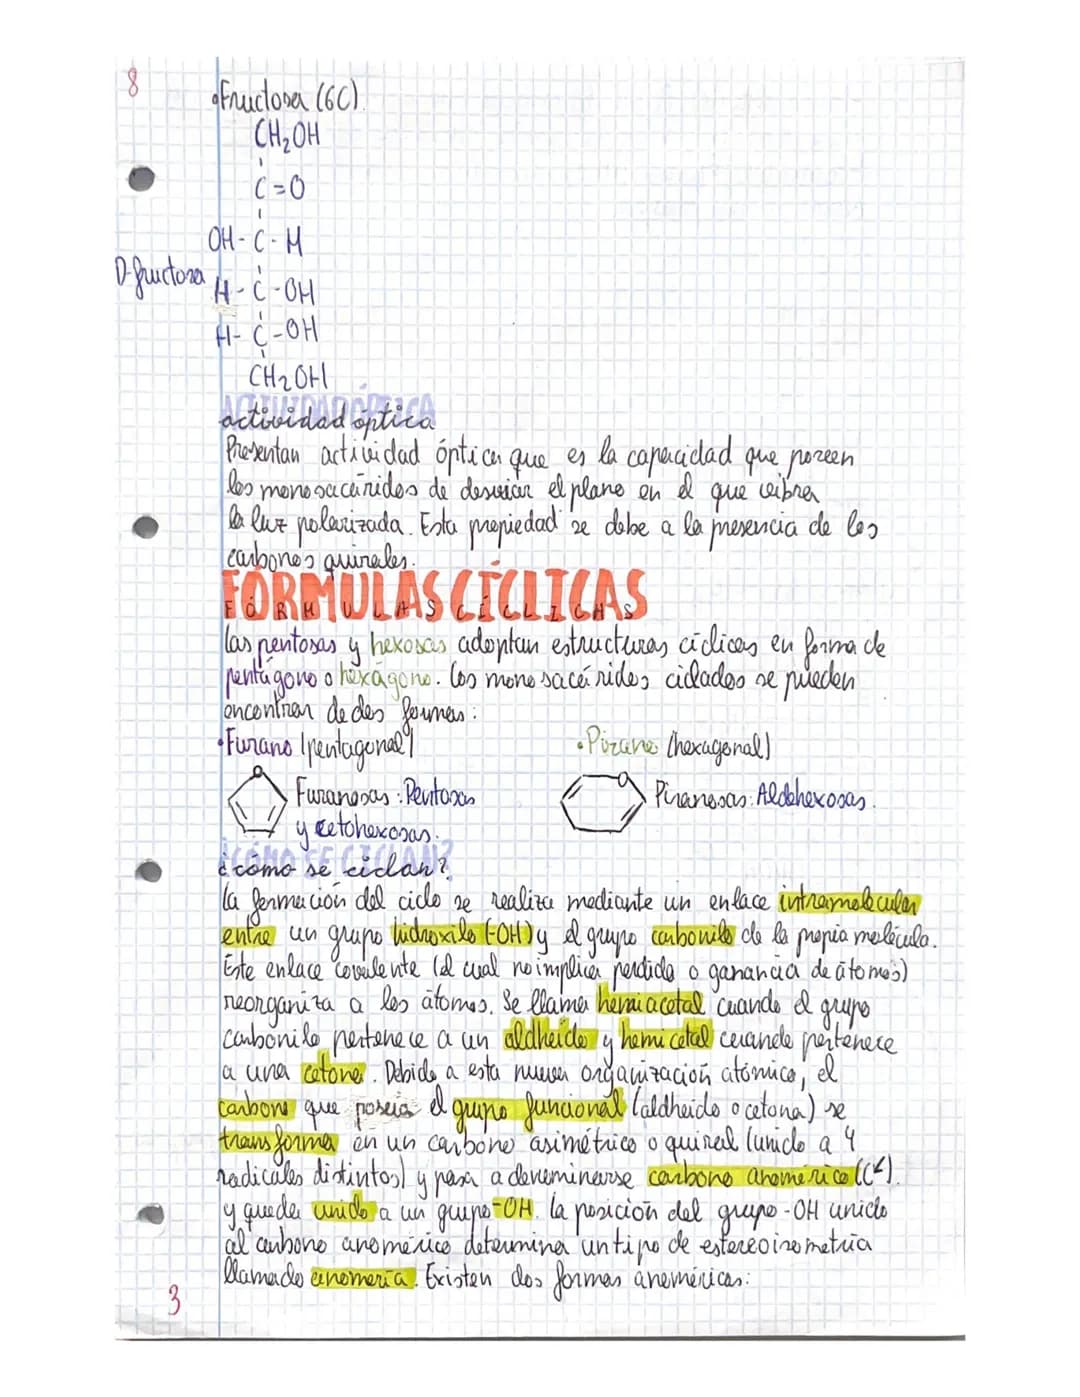 8
•Fructosa (6C)
CH₂OH
C=O
OH-C-H
D-fructosa
H-C-OH
H-C-OH
CH₂OH
ACTIVIDAD ÓPTICA
actividad óptica
Presentan actividad óptica que es la capacidad que poseen
los monosacáridos de desviar el plano en el que vibra
la luz polarizada. Esta propiedad se debe a la presencia de los
carbonos quirales.
FÓRMULAS CÍCLICAS
FÓRMULAS CÍCLICAS
las pentosas y hexosas adoptan estructuras cíclicas en forma de
pentágono o hexágono. los monosacáridos ciclados se pueden
encontrar de dos formas:
•Furano (pentagonal)
•Pirano (hexagonal)
Furanosas: Pentosas
y cetohexosas.
Piranosas: Aldohexosas.
¿CÓMO SE CICLAN?
¿cómo se ciclan?
la formación del ciclo se realiza mediante un enlace intramolecular
entre un grupo hidroxilo (-OH) y el grupo carbonilo de la propia molécula.
Este enlace covalente (el cual no implica perdida o ganancia de átomos)
reorganiza a los átomos. Se llama hemiacetal cuando el grupo
carbonilo pertenece a un aldheido y hemicetal cuando pertenece
a una cetona. Debido a esta nueva organización atómica, el
carbono que poseía el grupo funcional (aldheido o cetona) se
transforma en un carbono asimétrico o quiral (unido a 4
radicales distintos) y pasa a denominarse carbono anomérico
y queda unido a un grupo -OH. la posición del grupo -OH unido
al carbono anomérico determina un tipo de estereoisometria
llamado anomería. Existen dos formas anoméricas:
3